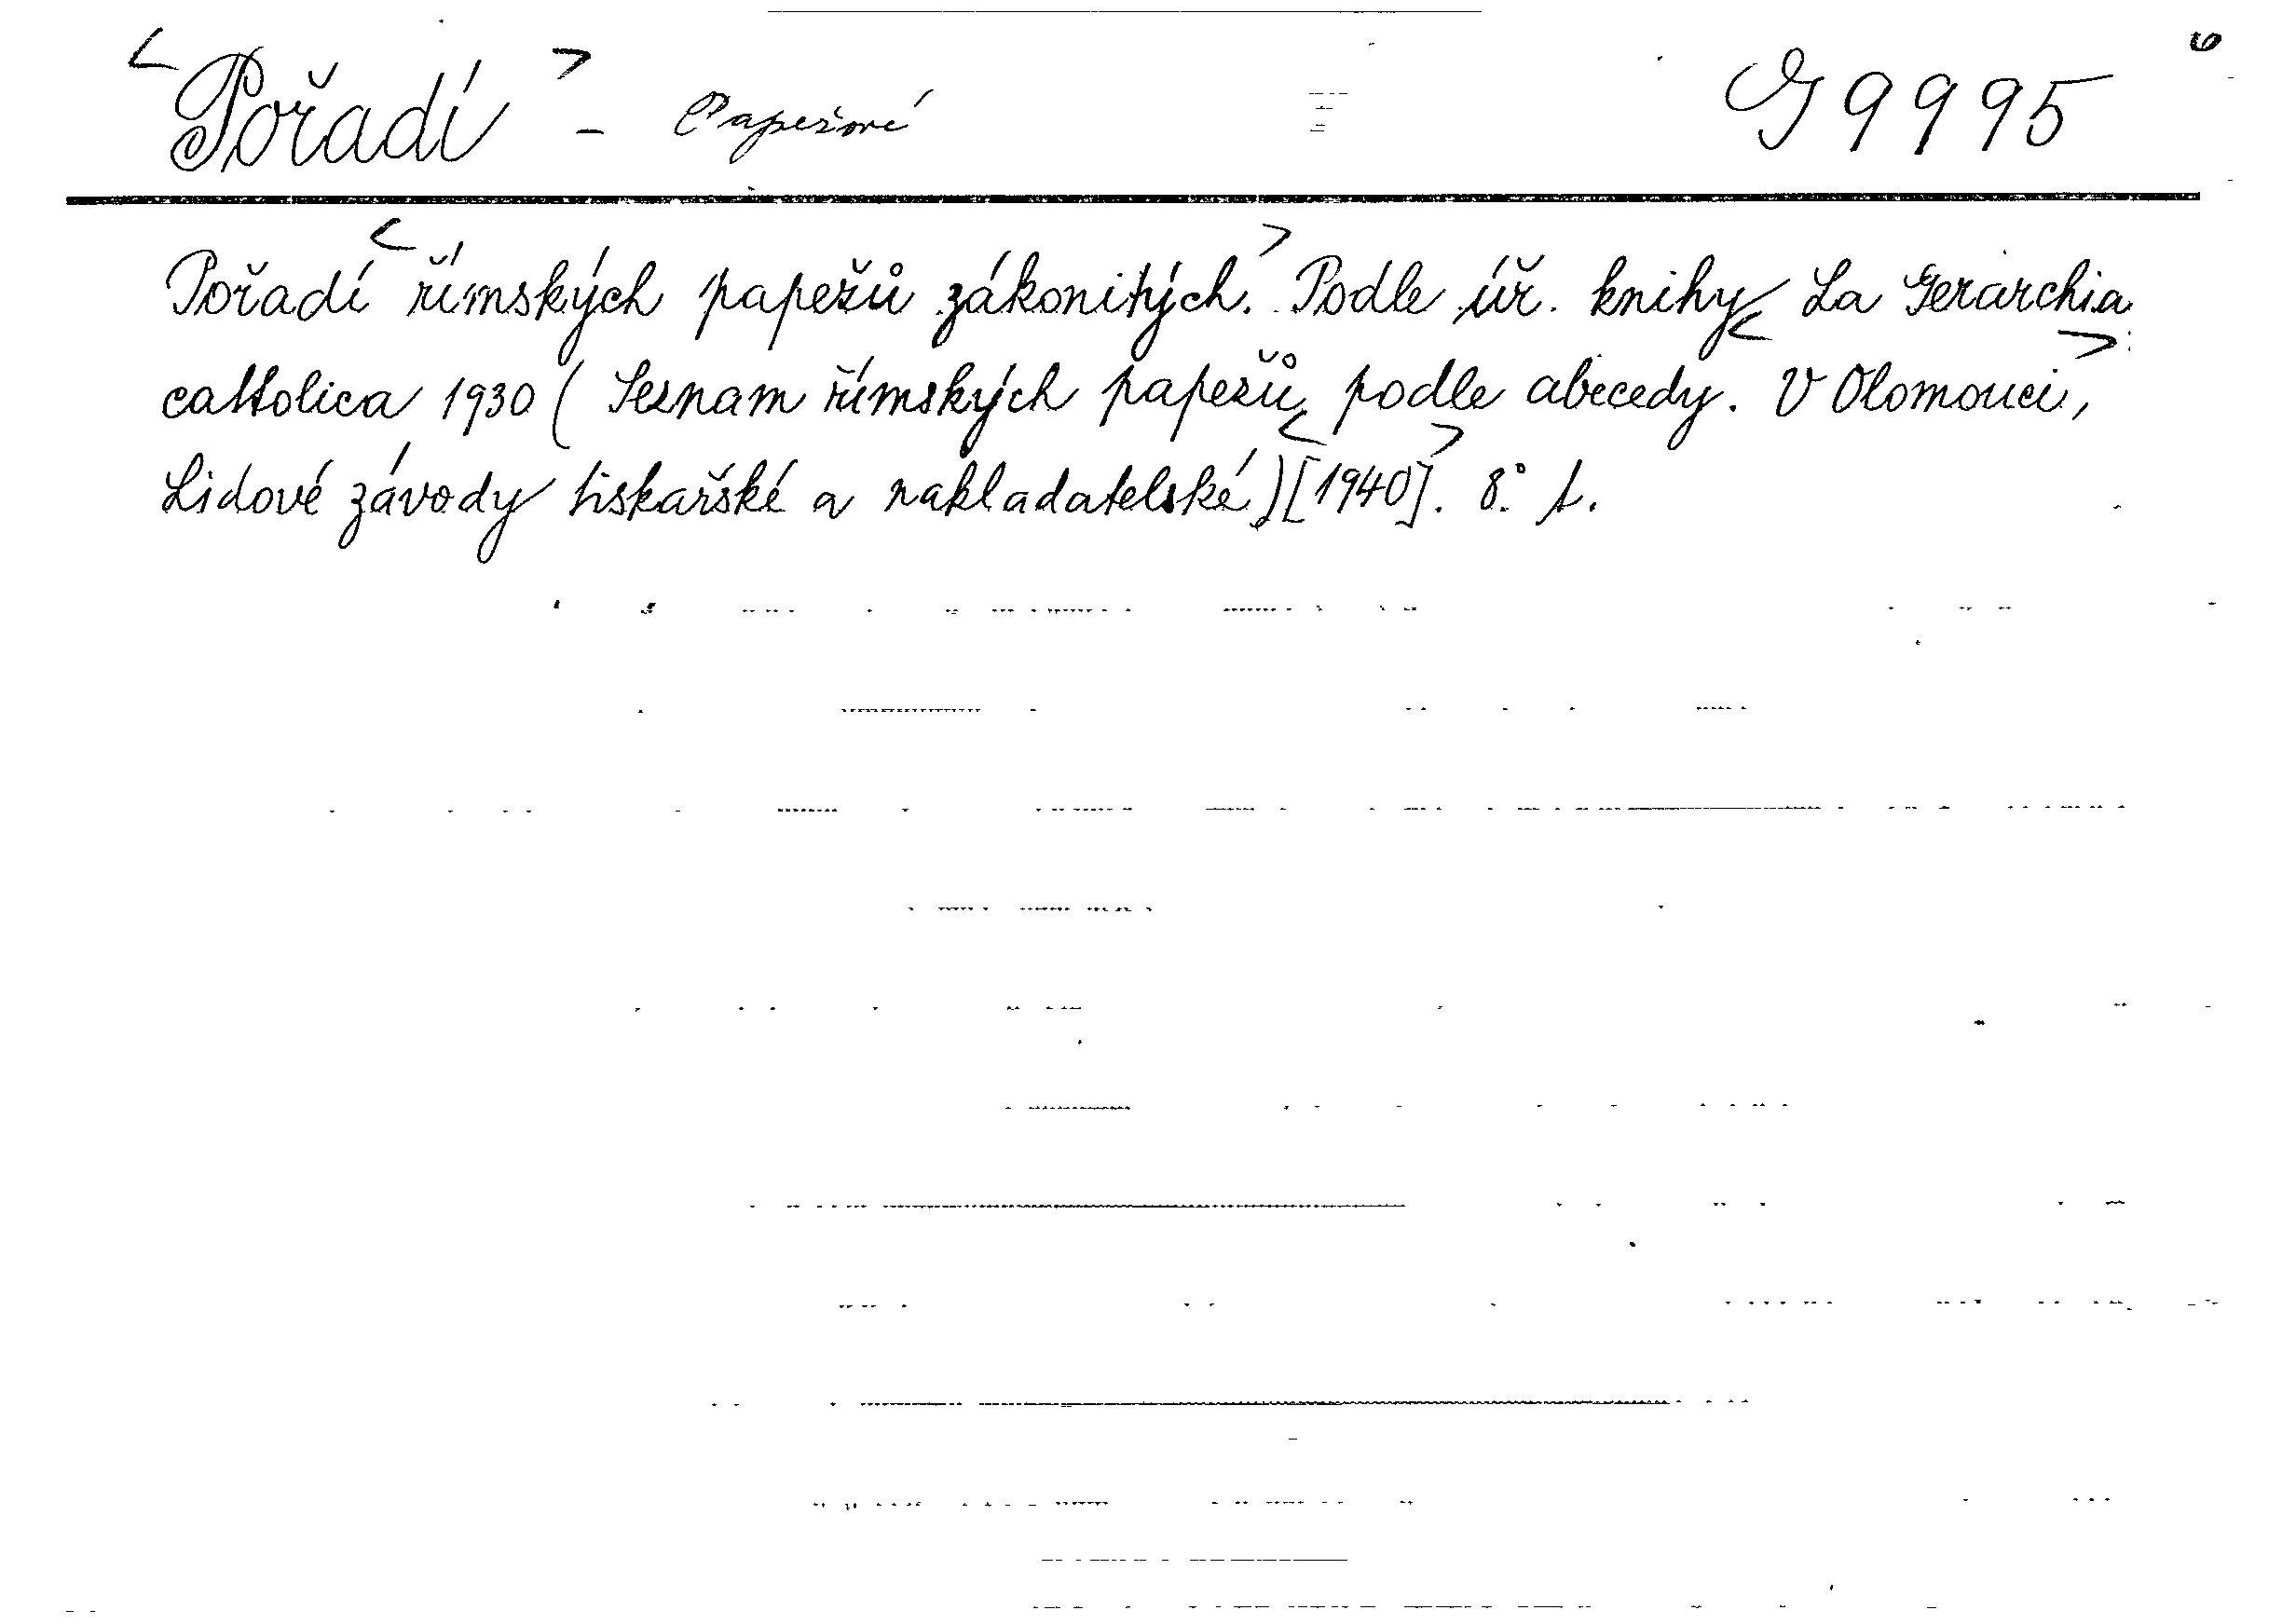 <Pořadí> - Papežové G 9995
Pořadí <římských papežů zákonitých.> Podle úř. knihy La Gerarchia
cattolica 1930 (Seznam římských papežů podle abecedy. <V Olomouci,>
Lidové závody tiskařské a nakladatelské) <[1940]>. 8.° 1.